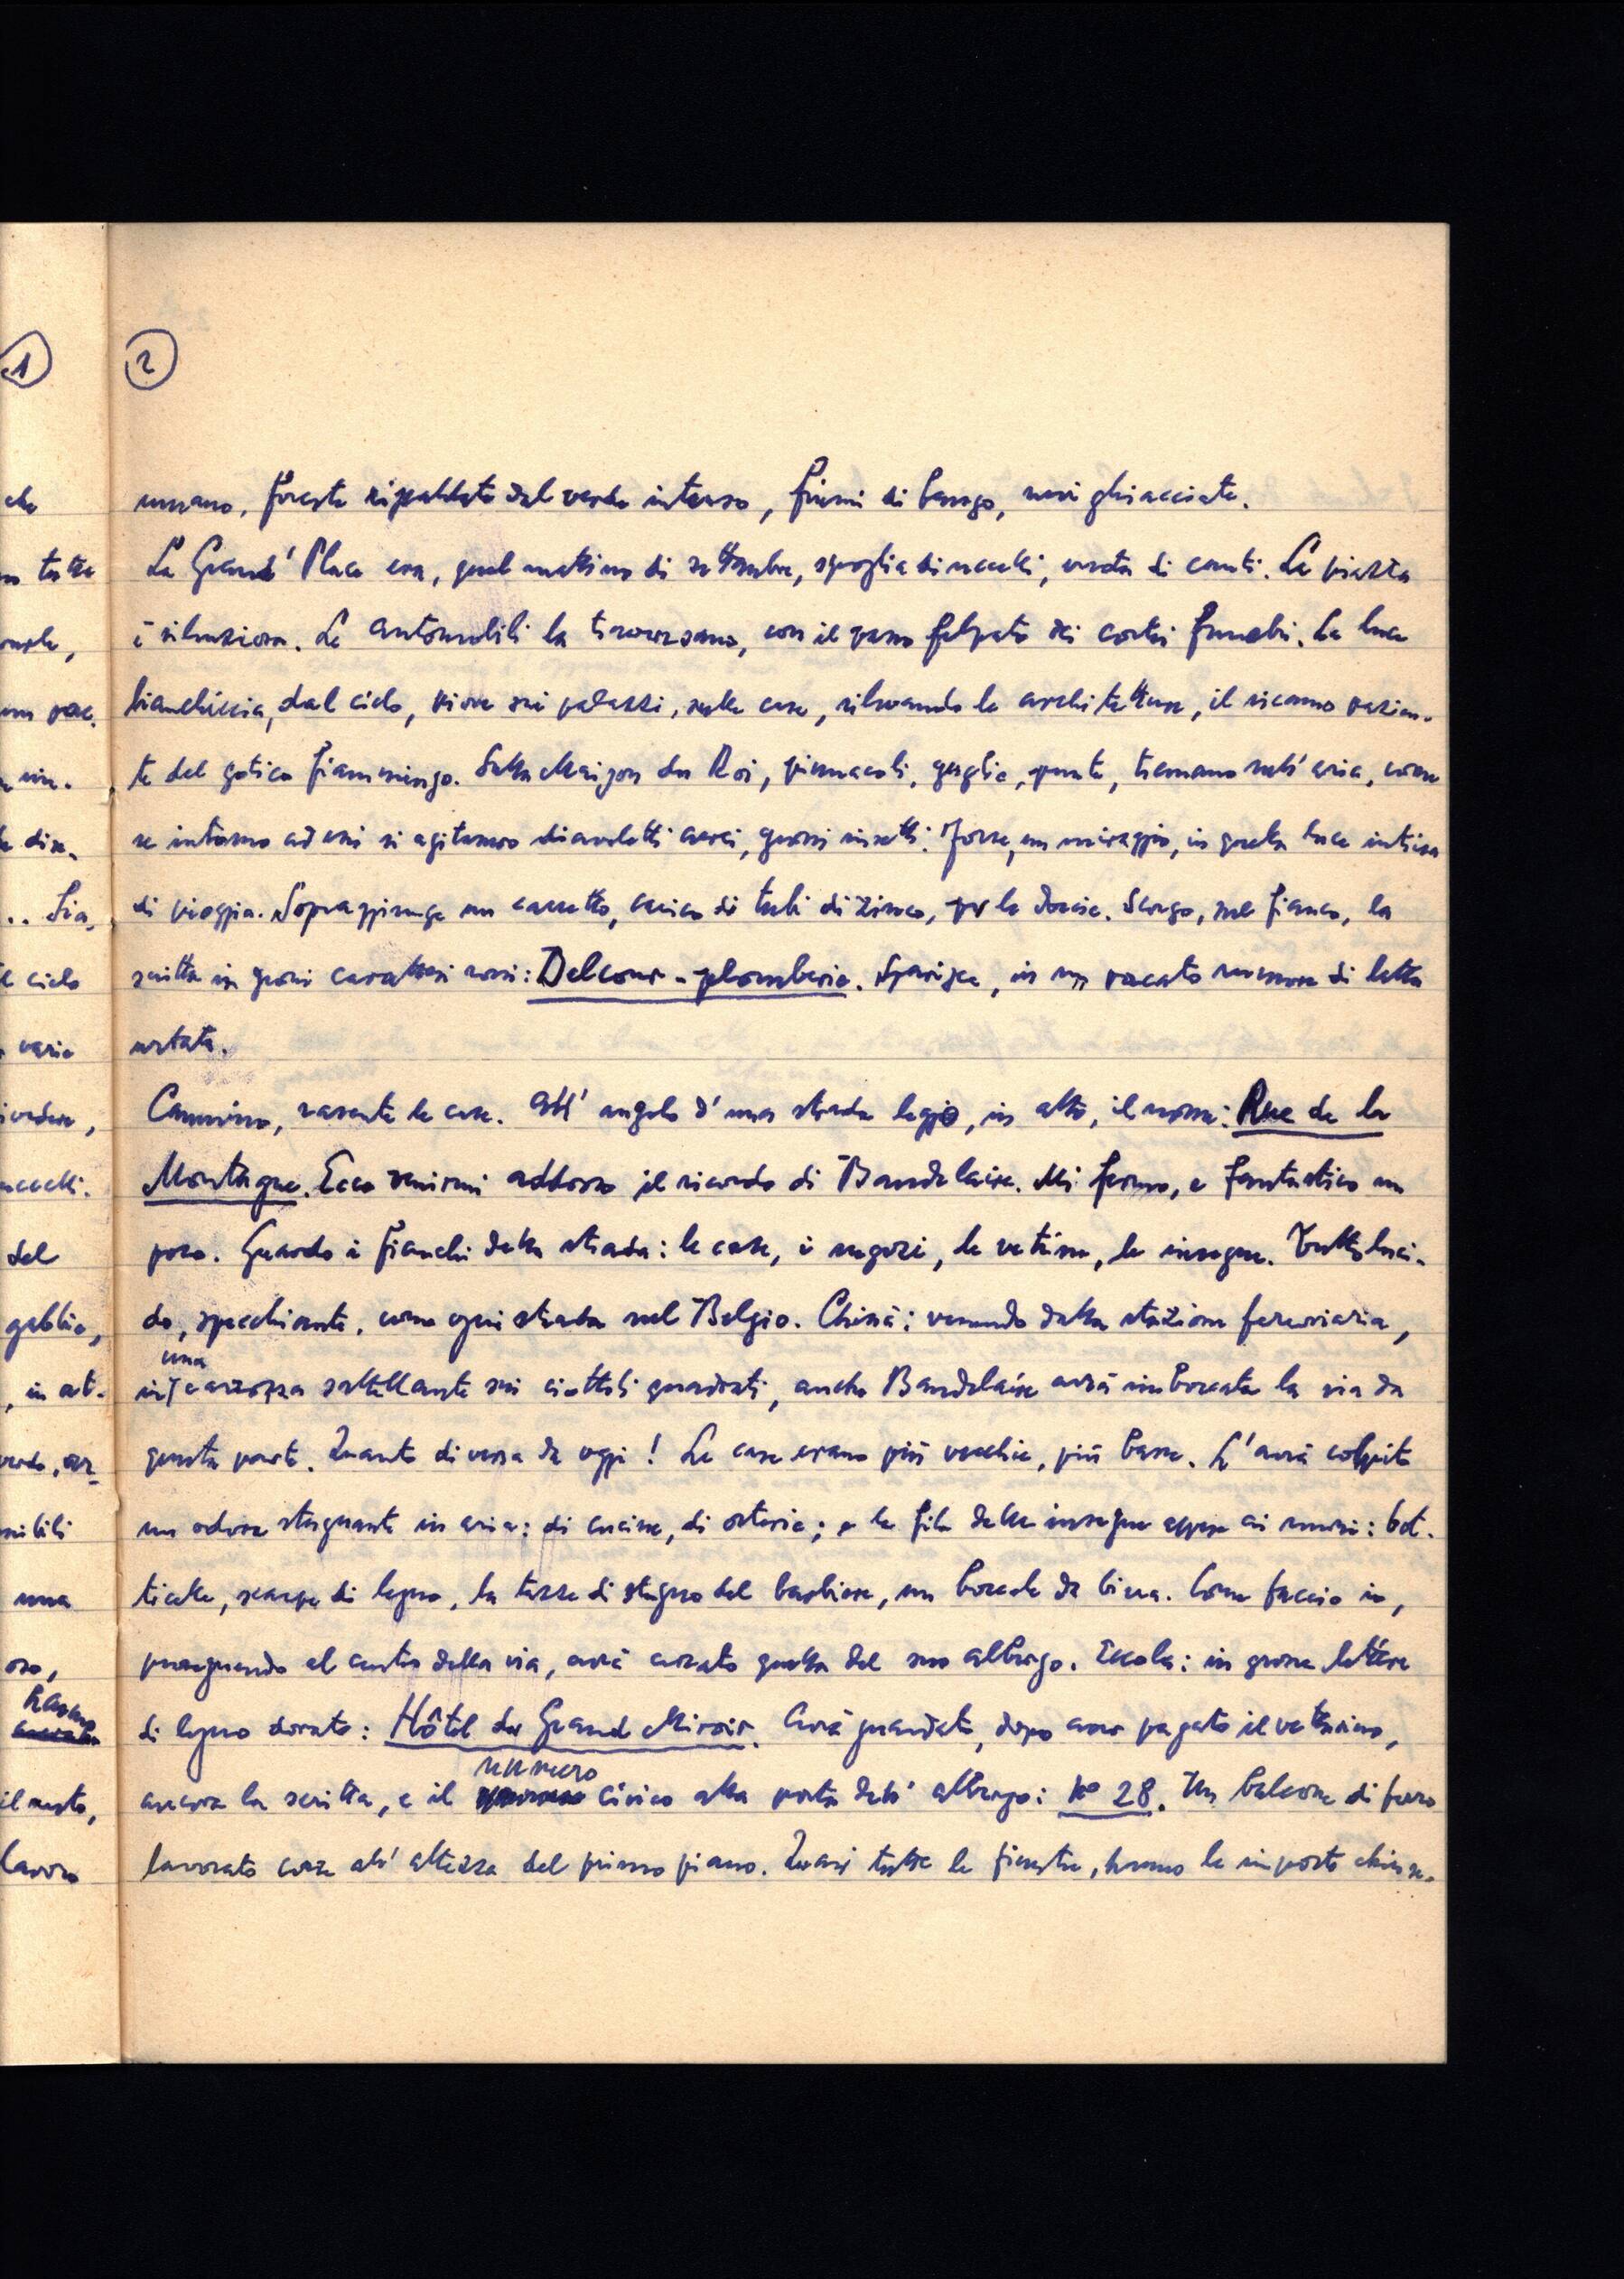 2
umano, foreste riscaldate dal verde intenso, fiumi di fango, mari ghiacciati.
La Grand' Place era, quel mattino di settembre, spoglia di uccelli, vuota di canti. La piazza
è silenziosa. Le automobili la traversano, con il passo felpato dei cortei funebri. La luce
bianchiccia, dal cielo, piove sui palazzi, sulle case, rilevando le architetture, il ricamo pazien-
te del gotico fiammingo. Sulla Maison du Roi, pinnacoli, guglie, punte, tremano nell'aria, come
se intorno ad essi si agitassero diavoletti aerei, grossi insetti. Forse, un miraggio, in quella luce intrisa
di pioggia. Sopraggiunge un carretto, carico di tubi di zinco, per le docce. Scorgo, sul fianco, la
scritta in grossi caratteri rossi: Delcour - plomberie. Sparisce, in un pacato rumore di latta
urtata.
Cammino, rasente le case. All' angolo d' una strada leggo, in alto, il nome: Rue de la
Montagne. Ecco venirmi addosso il ricordo di Baudelaire. Mi fermo, e fantastico un
poco. Guardo i fianchi della strada: le case, i negozi, le vetrine, le insegne. Tutto luci-
do, specchiante, come ogni strada nel Belgio. Chissà: venendo dalla stazione ferroviaria,
in una carrozza saltellante sui ciottoli quadrati, anche Baudelaire avrà imboccata la via da
questa parte. Quanto diversa da oggi! Le case erano più vecchie, più basse. L'avrà colpito
un odore stagnante in aria: di cucine, di osterie; e la fila delle insegne appese ai muri: bot-
ticelle, scarpe di legno, la tazza di stagno del barbiere, un boccale da birra. Come faccio io,
proseguendo al centro della via, avrà cercato quella del suo albergo. Eccola: in grosse lettere
di legno dorato: Hôtel du Grand Miroir. Avrà guardato, dopo aver pagato il vetturino,
ancora la scritta, e il numero civico alla porta dell' albergo: No 28. Un balcone di ferro
lavorato corre all' altezza del primo piano. Quasi tutte le finestre, hanno le imposte chiuse.
1
che
tutta
cielo
varie
uccelli.
del
gabbie,
una
lavoro